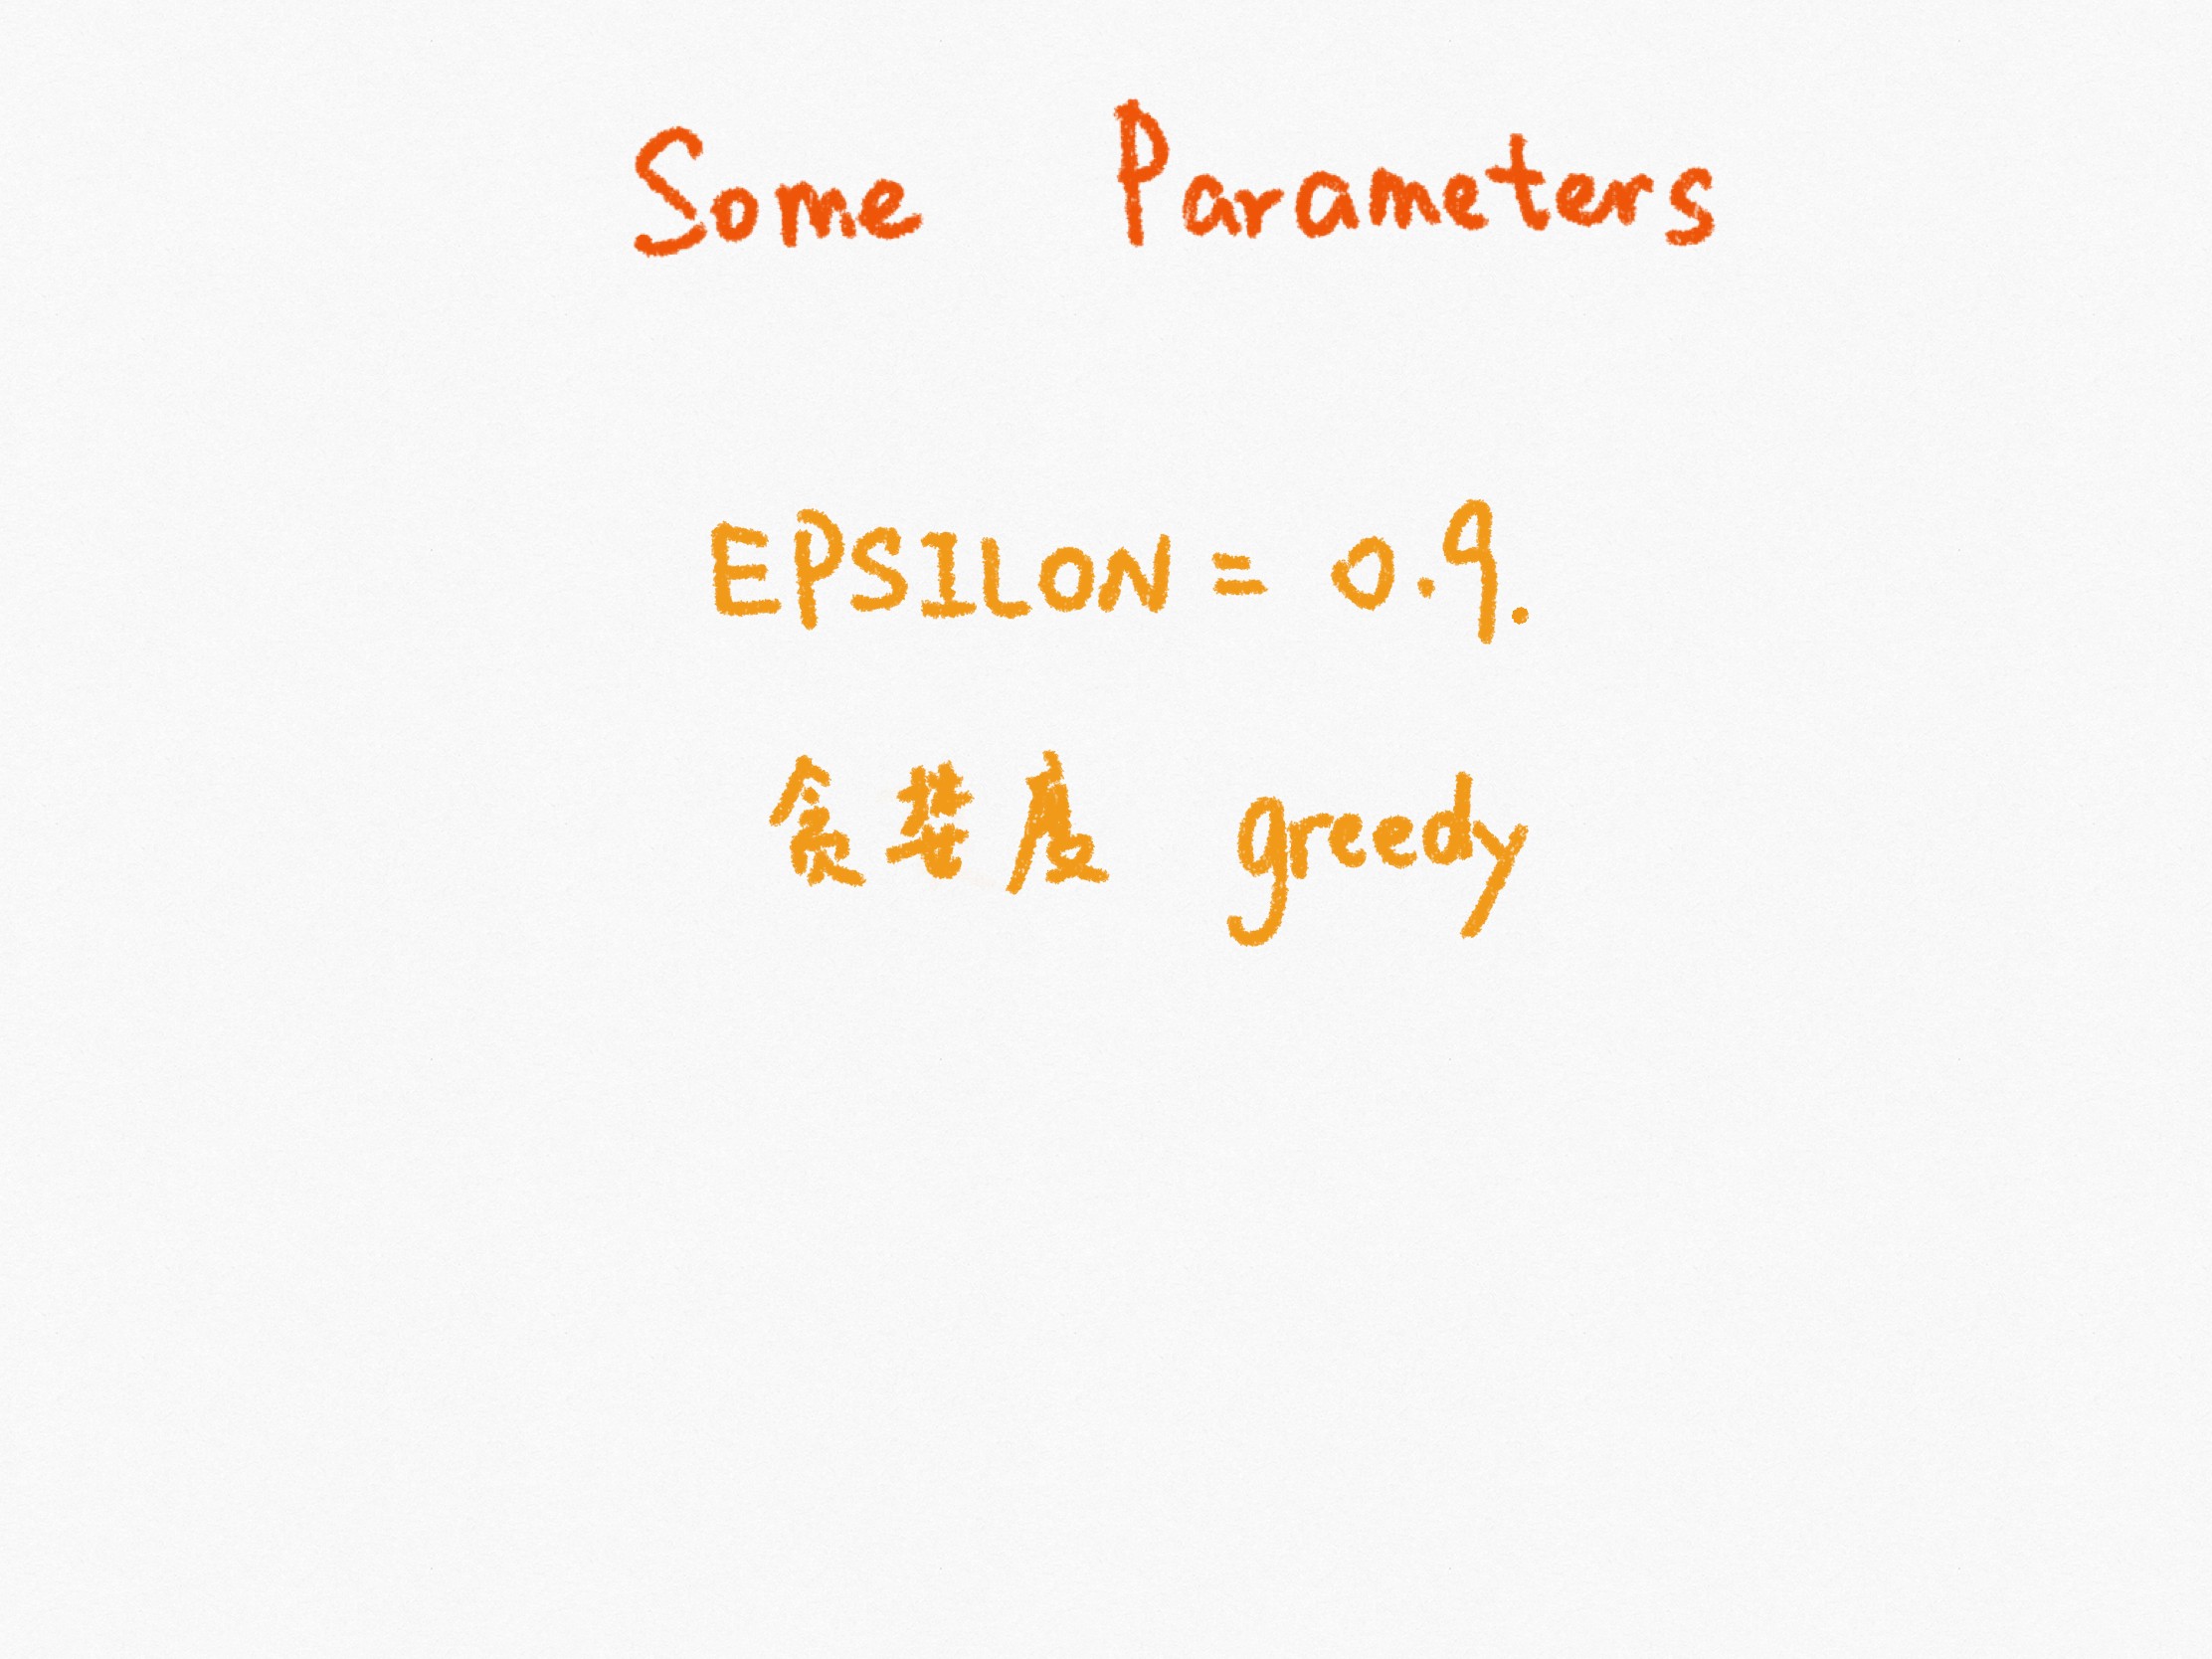 Some Parameters
EPSILON = 0.9.
贪婪度 greedy